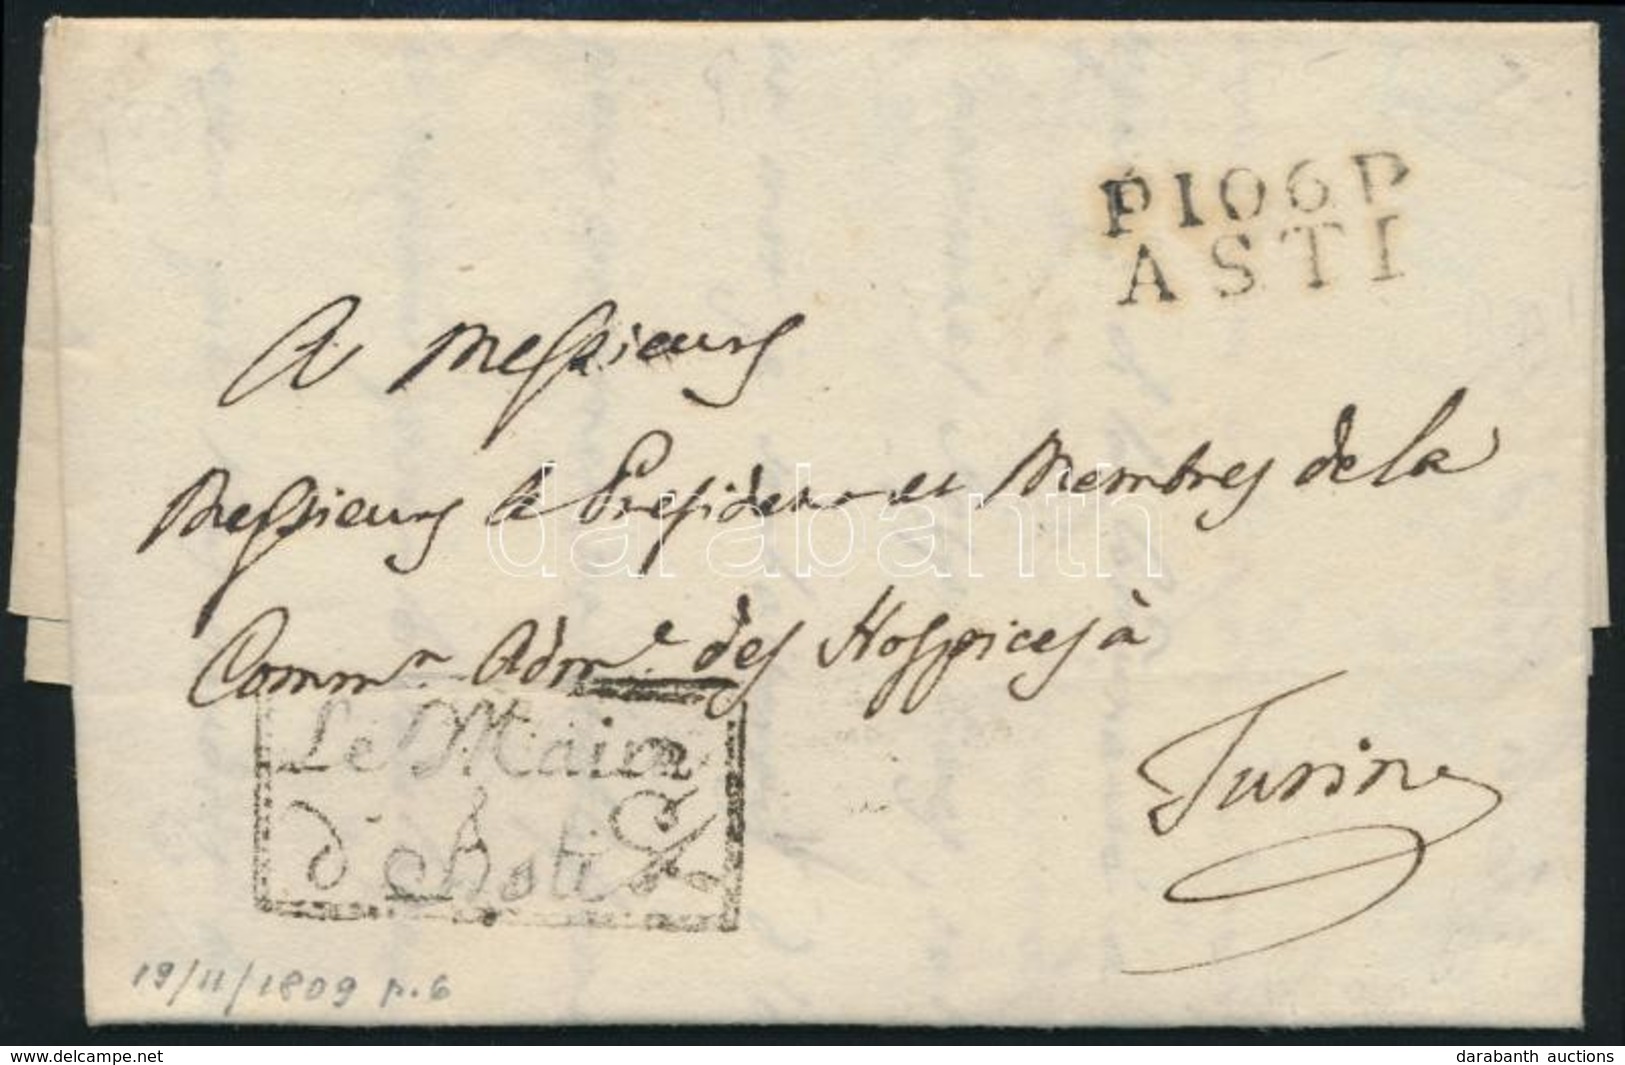 P106P
ASTI
A Messieurs
Messieurs le President et Membres de la
Commn Admve des Hospices à
Turin
Le Maire
d'Asti
19/11/1809 p.6
darabanth
www.delcampe.net
darabanth auctions